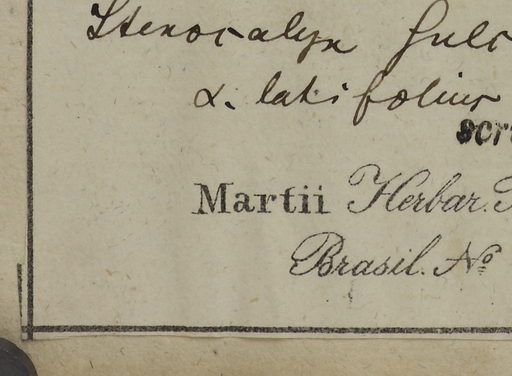 Stenocalyx sulc
α. latifolius
scri
Martii Herbar.
Brasil. No